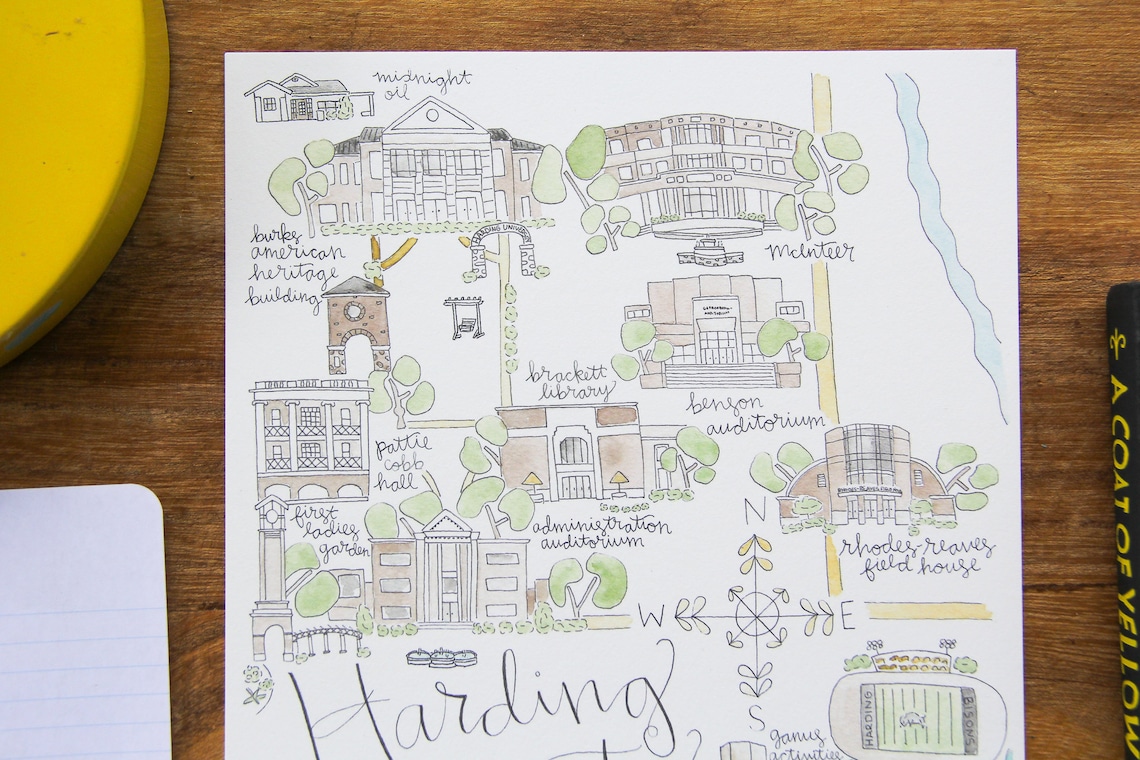 midnight
oil
burks
american
heritage
building
HARDING UNIVERSITY
McInteer
benson
auditorium
brackett
library
pattie
cobb
hall
first
ladies
garden
administration
auditorium
RHODES-REAVES FIELD HOUSE
rhodes-reaves
field house
N
W
E
S
Harding
HARDING
BISONS
ganus
activities
A COAT OF YELLOW